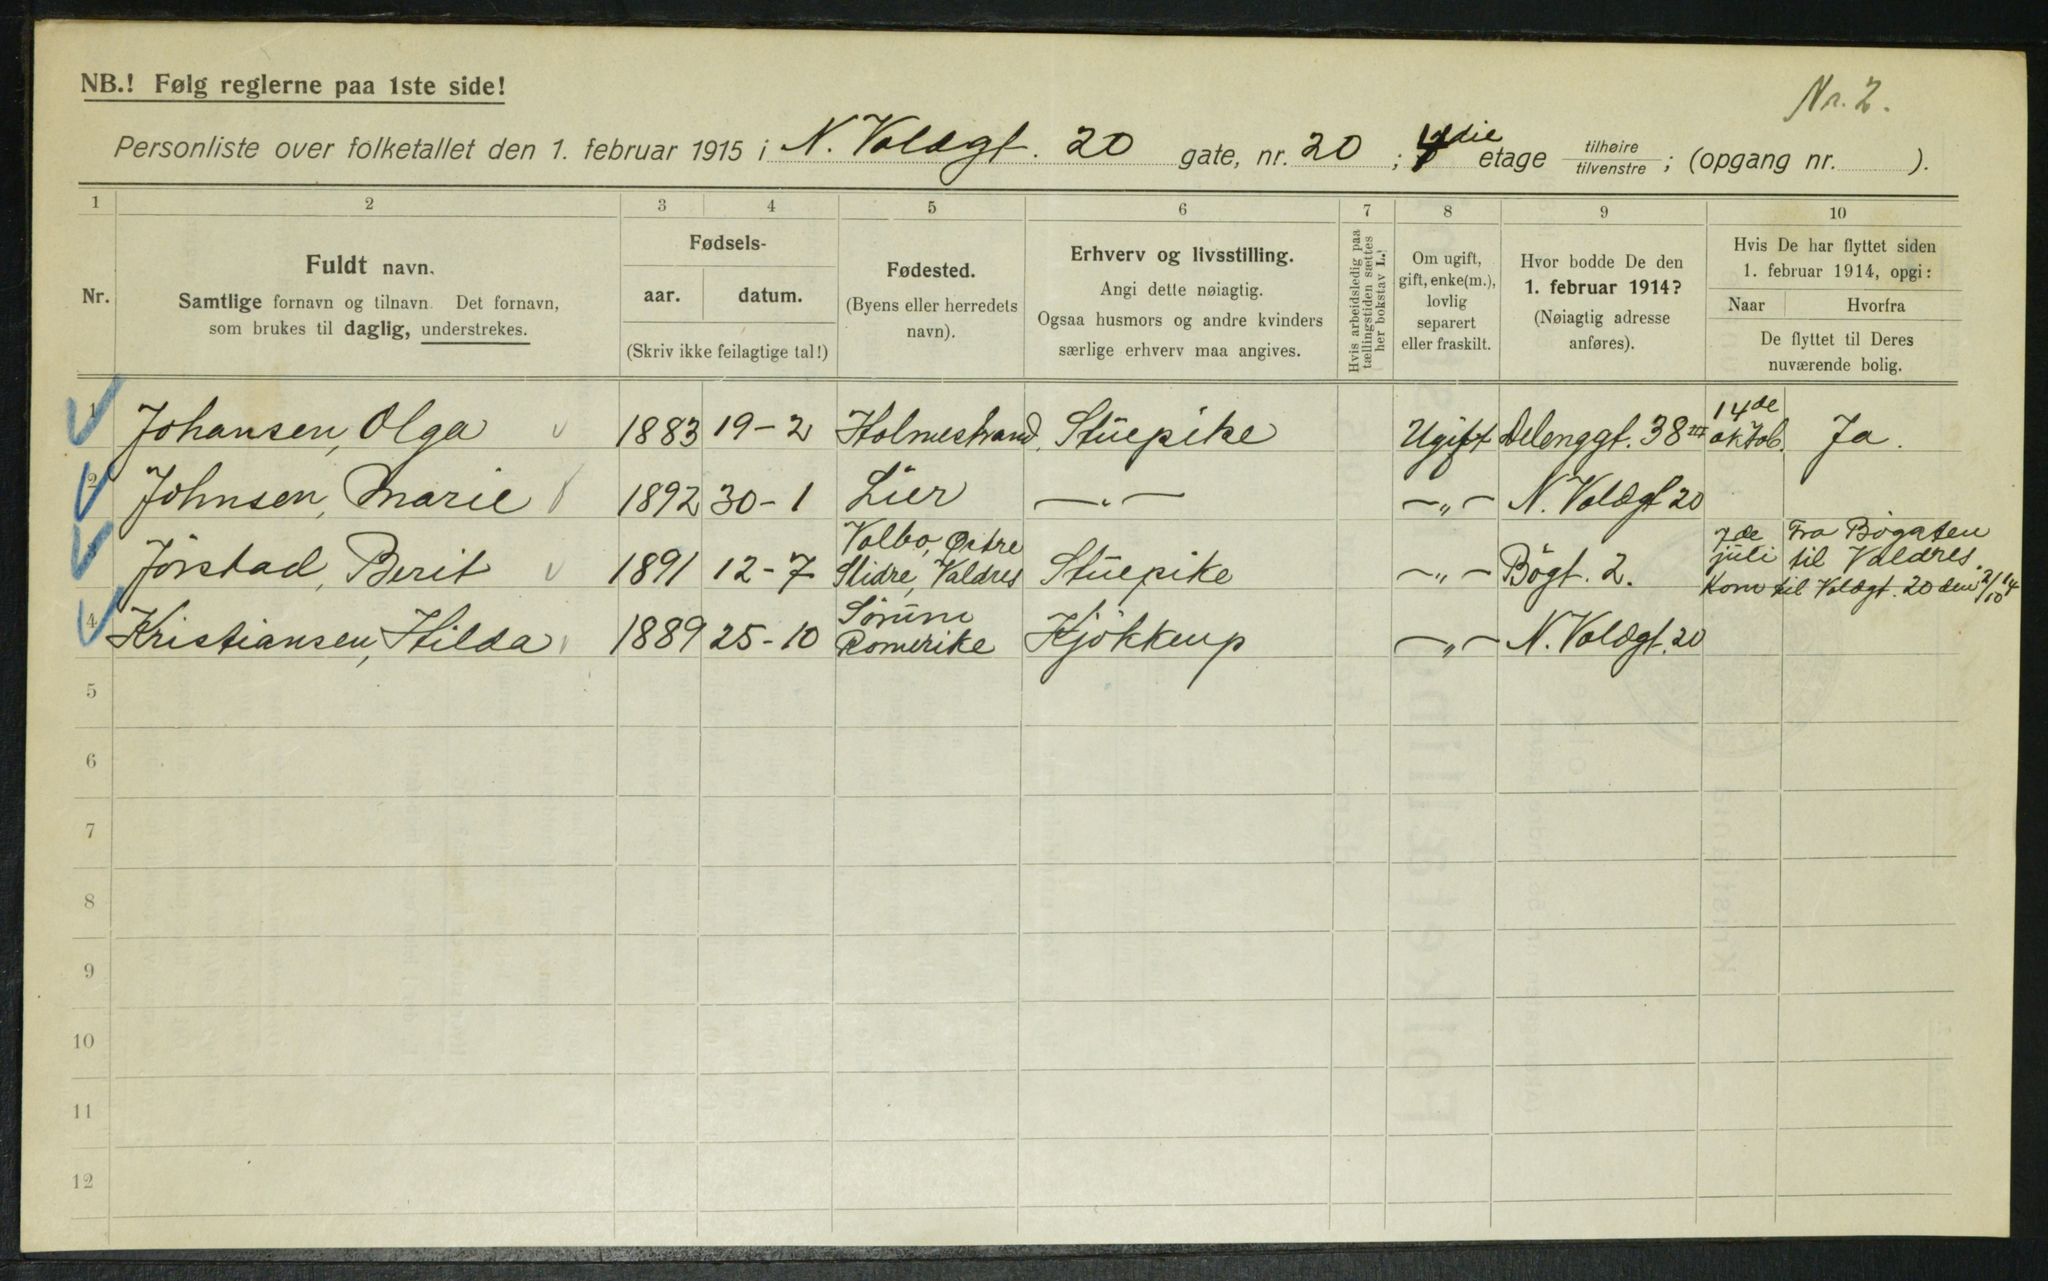 NB.! Følg reglerne paa 1ste side!
Nr. 2.
Personliste over folketallet den 1. februar 1915 i N. Voldgt. 20 gate, nr. 20 ; 4die etage tilhøire tilvenstre ; (opgang nr. ).
1 2 3 4 5 6 7 8 9 10
Nr.
Fuldt navn.
Samtlige fornavn og tilnavn. Det fornavn,
som brukes til daglig, understrekes.
Fødsels-
aar. datum.
(Skriv ikke feilagtige tal!)
Fødested.
(Byens eller herredets
navn).
Erhverv og livsstilling.
Angi dette nøiagtig.
Ogsaa husmors og andre kvinders
særlige erhverv maa angives.
Hvis arbeidsledig paa
tællingstiden sættes
her bokstav L.!
Om ugift,
gift, enke(m.),
lovlig
separert
eller fraskilt.
Hvor bodde De den
1. februar 1914?
(Nøiagtig adresse
anføres).
Hvis De har flyttet siden
1. februar 1914, opgi:
Naar Hvorfra
De flyttet til Deres
nuværende bolig.
1 Johansen, Olga 1883 19-2 Holmestrand. Stuepike Ugift Delenggt. 38 III 14de oktob. Ja.
2 Johnsen, Marie 1892 30-1 Lier —"— —"— N. Voldgt 20
3 Jörstad, Berit 1891 12-7 Volbo, Østre Slidre, Valdres Stuepike —"— Bögt. 2. 7de juli Fra Bögaten til Valdres.
Kom til Voldgt. 20 den 2/10 14
4 Kristiansen, Hilda 1889 25-10 Sörum Romerike Kjökkenp —"— N. Voldgt. 20
5
6
7
8
9
10
11
12